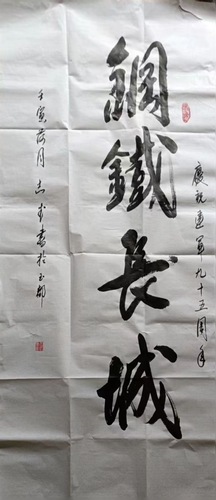 慶祝建軍九十五周年
鋼鐵長城
壬寅荷月志武書於玉都